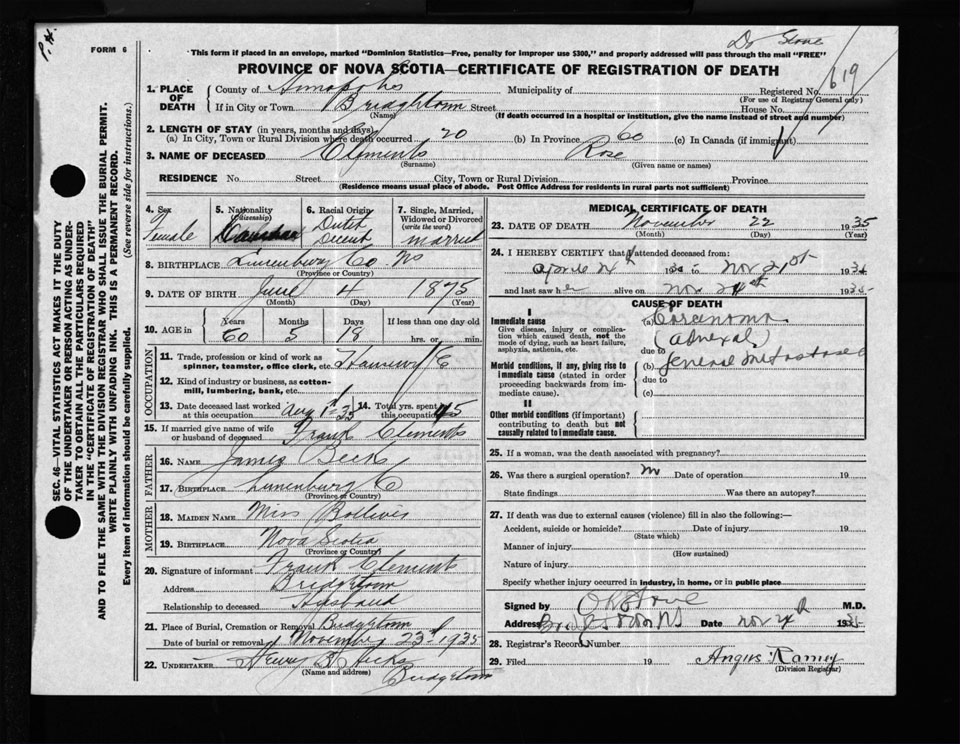 P.H.
FORM 6
Dr Stone
This form if placed in an envelope, marked "Dominion Statistics—Free, penalty for improper use $300," and properly addressed will pass through the mail "FREE"
PROVINCE OF NOVA SCOTIA—CERTIFICATE OF REGISTRATION OF DEATH
619
1. PLACE OF DEATH
County of Annapolis Municipality of Registered No.
(For use of Registrar General only)
If in City or Town Bridgetown Street House No.
(Name) (If death occurred in a hospital or institution, give the name instead of street and number)
2. LENGTH OF STAY (in years, months and days)
(a) In City, Town or Rural Division where death occurred 20 (b) In Province 60 (c) In Canada (if immigrant)
3. NAME OF DECEASED Clements Rose
(Surname) (Given name or names)
RESIDENCE No. Street City, Town or Rural Division Province
(Residence means usual place of abode. Post Office Address for residents in rural parts not sufficient)
4. Sex Female
5. Nationality (Citizenship) Canadian
6. Racial Origin Dutch Decent
7. Single, Married, Widowed or Divorced (write the word) married
8. BIRTHPLACE Lunenburg Co NS
(Province or Country)
9. DATE OF BIRTH June 4 1875
(Month) (Day) (Year)
10. AGE in Years Months Days If less than one day old
60 5 18 hrs. or min.
OCCUPATION
11. Trade, profession or kind of work as spinner, teamster, office clerk, etc.
12. Kind of industry or business, as cotton-mill, lumbering, bank, etc.
13. Date deceased last worked at this occupation Aug 1st 35
14. Total yrs. spent in this occupation 45
15. If married give name of wife or husband of deceased Frank Clements
FATHER
16. NAME James Beck
17. BIRTHPLACE Lunenburg C
(Province or Country)
MOTHER
18. MAIDEN NAME Miss
19. BIRTHPLACE Nova Scotia
(Province or Country)
20. Signature of informant Frank Clement
Address Bridgetown
Relationship to deceased Husband
21. Place of Burial, Cremation or Removal Bridgetown
Date of burial or removal November 23rd 1935
22. UNDERTAKER Hicks
(Name and address) Bridgetown
MEDICAL CERTIFICATE OF DEATH
23. DATE OF DEATH November 22 1935
(Month) (Day) (Year)
24. I HEREBY CERTIFY that I attended deceased from:
19 to Nov 21st 193
and last saw her alive on Nov 193
CAUSE OF DEATH
I
Immediate cause (a) Carcinoma
Give disease, injury or complication which caused death, not the mode of dying, such as heart failure, asphyxia, asthenia, etc.
(adnexal)
due to
Morbid conditions, if any, giving rise to immediate cause (stated in order proceeding backwards from immediate cause).
(b) General
due to
(c)
II
Other morbid conditions (if important) contributing to death but not causally related to immediate cause.
25. If a woman, was the death associated with pregnancy?
26. Was there a surgical operation? no Date of operation 19
State findings Was there an autopsy?
27. If death was due to external causes (violence) fill in also the following:—
Accident, suicide or homicide? Date of injury 19
(State which)
Manner of injury
(How sustained)
Nature of injury
Specify whether injury occurred in industry, in home, or in public place
Signed by Stone M.D.
Address Bridgetown NS Date Nov 193
28. Registrar's Record Number
29. Filed 19 Angus Ramey
(Division Registrar)
SEC. 46—VITAL STATISTICS ACT MAKES IT THE DUTY
OF THE UNDERTAKER OR PERSON ACTING AS UNDER-
TAKER TO OBTAIN ALL THE PARTICULARS REQUIRED
IN THE "CERTIFICATE OF REGISTRATION OF DEATH"
AND TO FILE THE SAME WITH THE DIVISION REGISTRAR WHO SHALL ISSUE THE BURIAL PERMIT.
WRITE PLAINLY WITH UNFADING INK. THIS IS A PERMANENT RECORD.
Every item of information should be carefully supplied. (See reverse side for instructions.)